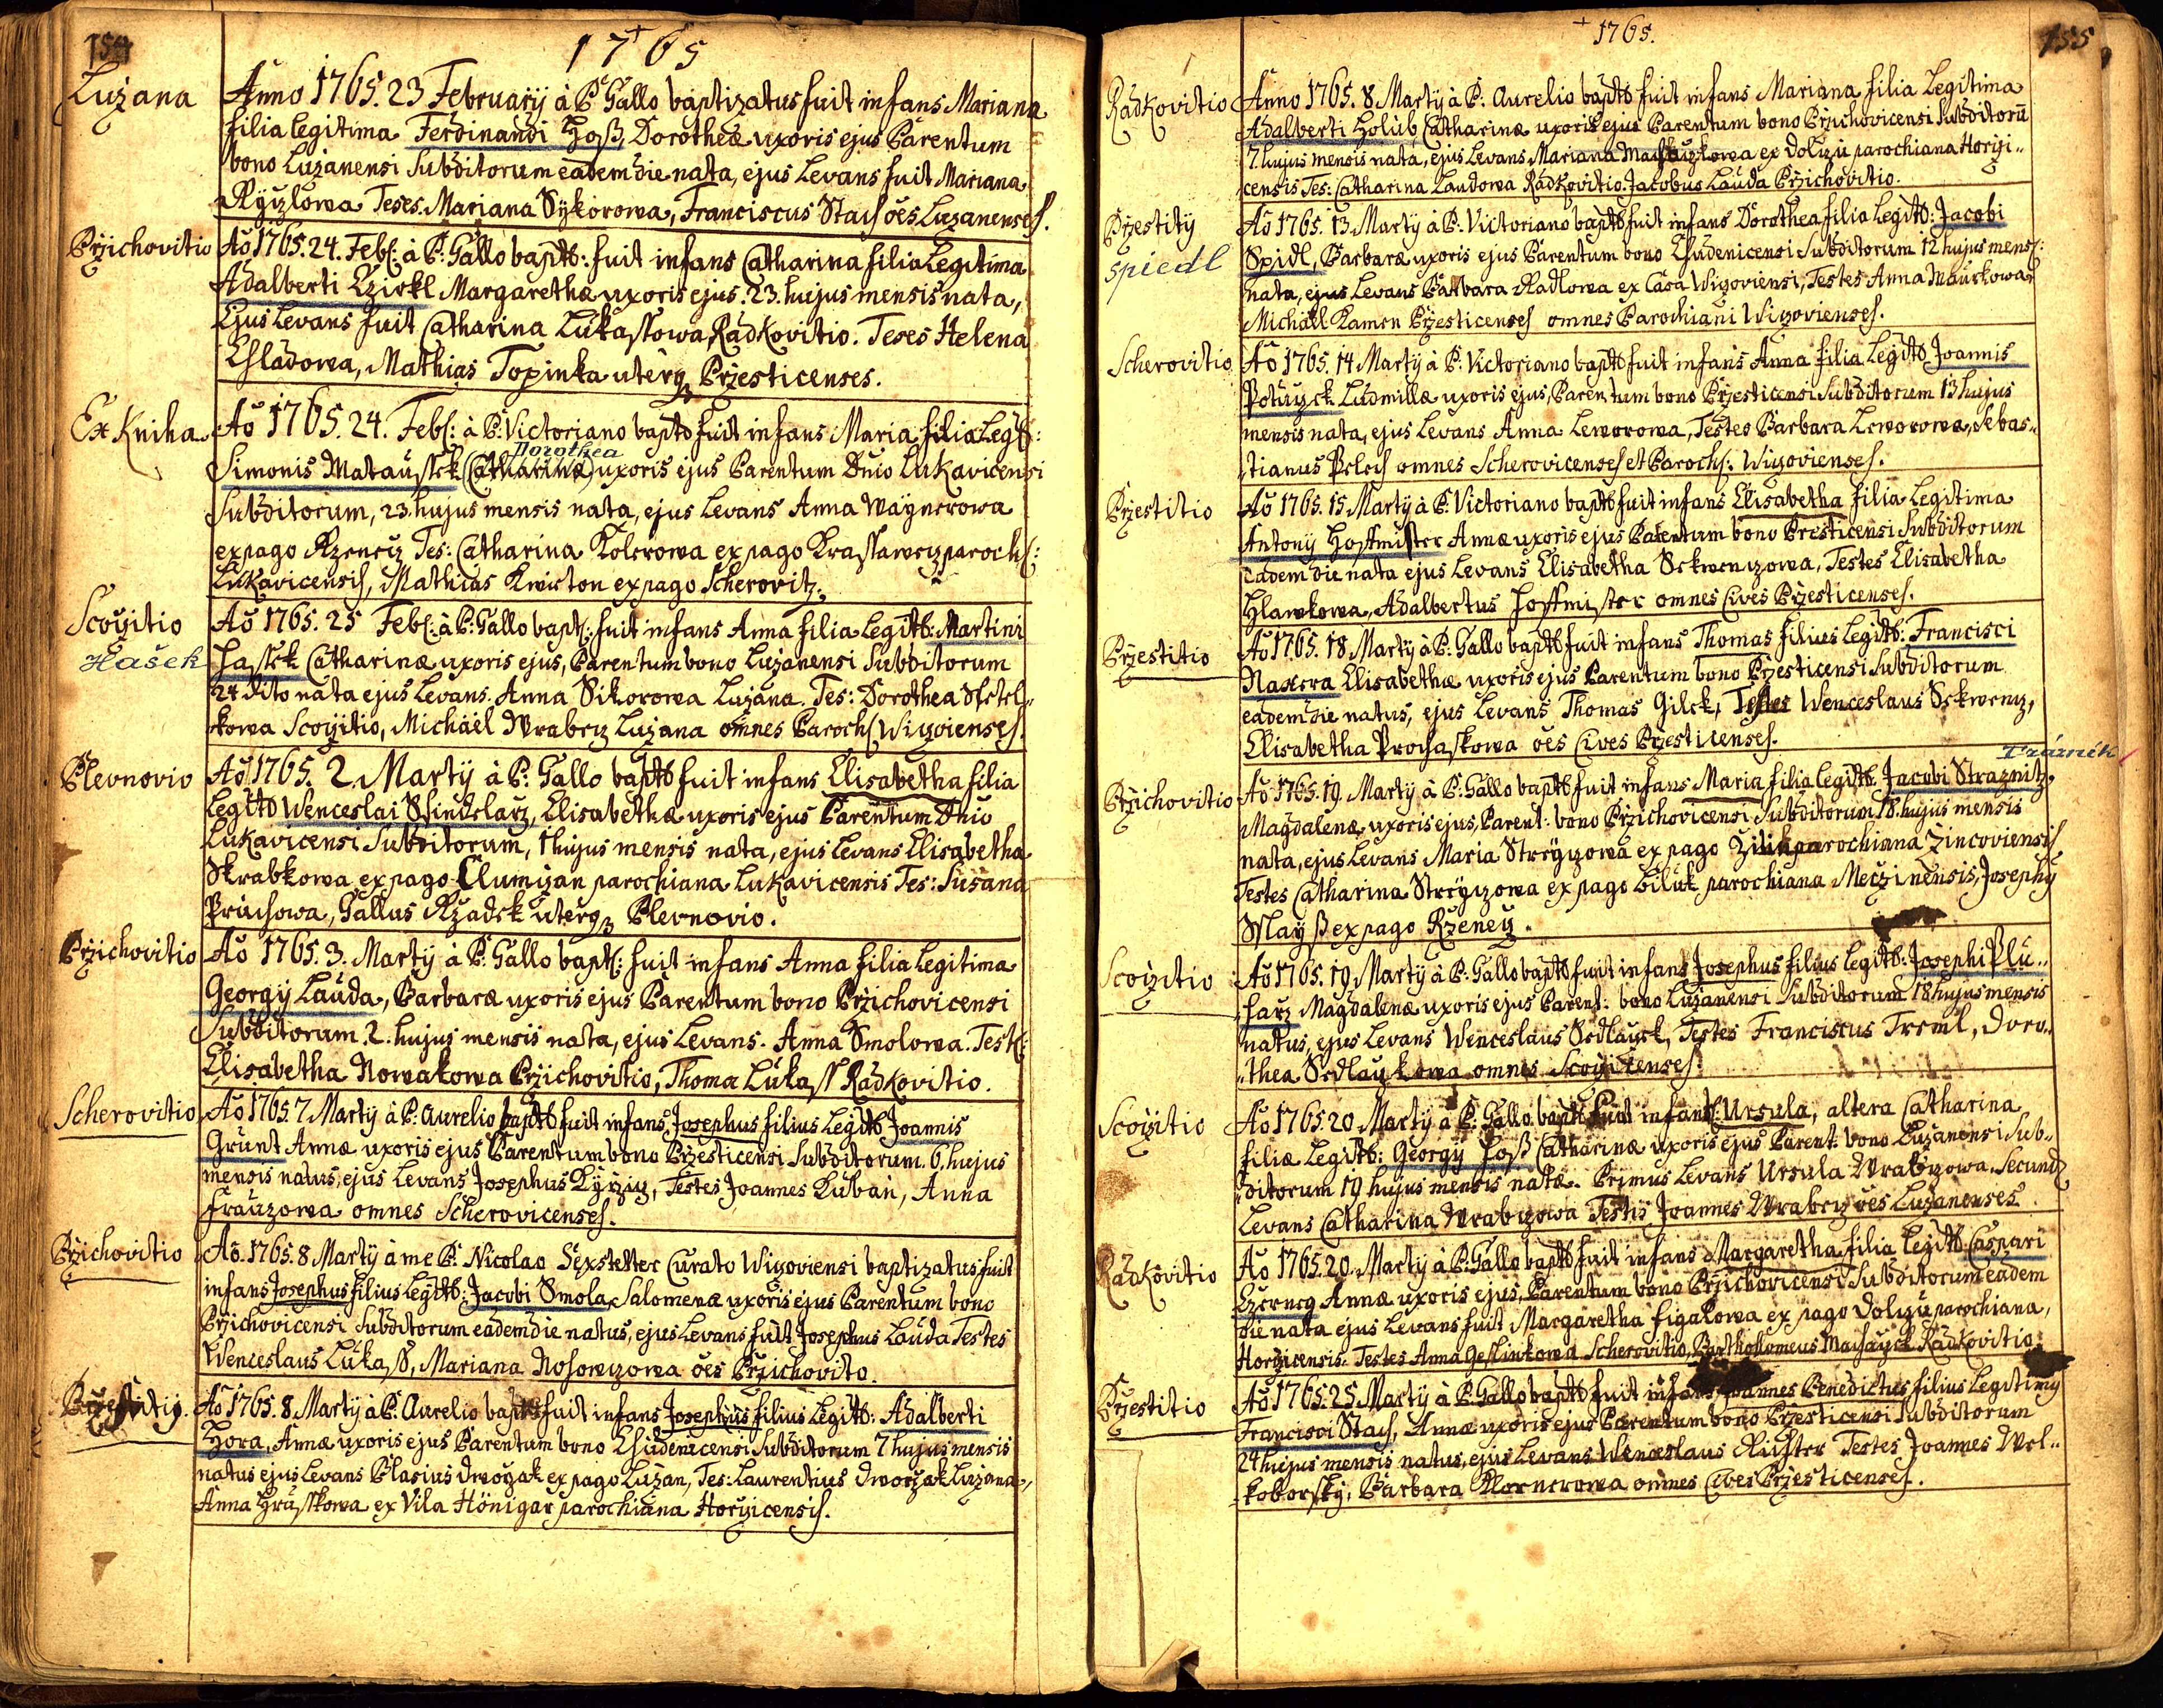 154
1765
Luzana
Anno 1765. 23 Februarÿ à P. Gallo baptizatus fuit infans Mariana
filia legitima Ferdinandi Hoß, Dorotheæ uxoris ejus Parentum
bono Luzanensi Subditorum eadem die nata, ejus Levans fuit Mariana
Teses. Mariana Sÿkorowa, Franciscus Stach ões Luzanenses.
Przichovitio
Aõ 1765. 24. Feb: à P: Gallo bapt: fuit infans Catharina filia Legitima
Adalberti Czirkl Margarethæ uxoris ejus. 23. hujus mensis nata,
Ejus Levans fuit Catharina Lukassowa Radkovitio. Teses Helena
Chladowa, Mathias Topinka uterq Przesticenses.
Ex Kniha
Aõ 1765. 24. Feb: à P: Victoriano bapt fuit infans Maria filia Leg:
Dorothea
Simonis Mataussek (Catharinæ) uxoris ejus Parentum Dnio Lukavicensi
Subditorum, 23. hujus mensis nata, ejus Levans Anna Waÿnerowa
ex pago Rzenecz Tes: Catharina Kolerowa ex pago Krassawecz paroch:
Lukavicensis, Mathias Kwiton ex pago Scherovitz.
Scozitio
Hašek
Aõ 1765. 25 Feb: à P: Gallo bapt: fuit infans Anna filia Legit: Martini
Hassek Catharinæ uxoris ejus, Parentum bono Luzanensi Subditorum
24 dito nata ejus Levans. Anna Sikorowa Luzana. Tes: Dorothea
kowa Scozitio, Michäel Wrabecz Luzana omnes Paroch Wizoienses.
Plevnovio
Aõ 1765. 2. Martÿ à P: Gallo bapt fuit infans Elisabetha filia
Legit Wenceslai Schindelarz, Elisabethæ uxoris ejus Parentum Dnio
Lukavicensi Subditorum, 1 hujus mensis nata, ejus Levans Elisabetha
Skrabkowa ex pago Clumizan parochiana Lukavicensis Tes: Susana
Pruchowa, Gallus Rzadek uterq Plevnovio.
Przichovitio
Aõ 1765. 3. Martÿ à P: Gallo bapt: fuit infans Anna filia Legitima
Georgÿ Lauda, Barbaræ uxoris ejus Parentum bono Przichovicensi
Subditorum. 2. hujus mensis nata, ejus Levans. Anna Smolowa. Test:
Elisabetha Nowakowa Przichovitio, Thoma Lukass Radkovitio.
Scherovitio
Aõ 1765. 7 Martÿ à P: Aurelio bapt fuit infans Josephus filius Legit Joannis
Grunt Annæ uxoris ejus Parentum bono Przesticensi Subditorum. 6. hujus
mensis natus, ejus Levans Josephus Testes Joannes Kuban, Anna
Frauzowa omnes Scherovicenses.
Przichovitio
Aõ. 1765. 8 Martÿ à me P: Nicolao Sexstetter Curato Wizoviensi baptizatus fuit
infans Josephus filius Legit: Jacobi Smola, Salomenæ uxoris ejus Parentum bono
Przichovicensi Subditorum eadem die natus, ejus Levans fuit Josephus Lauda Testes
Wenceslaus Lukass, Mariana Nosowizowa ões Przichovito.
Przestitÿ.
Aõ 1765. 8 Martÿ à P: Aurelio bapt fuit infans Josephus filius Legit: Adalberti
Hora, Annæ uxoris ejus Parentum bono Chudenicensi Subditorum 7 hujus mensis
natus ejus Levans Blasius Dworzak ex pago Luzan, Tes: Laurentius Dworzak Luzana,
Anna Hrusskowa ex Vila Hönigar parochiana Horzicensis.
1765.
155
Radkovitio
Anno 1765. 8 Martÿ à P: Aurelio bapt fuit infans Mariana filia Legitima
Adalberti Holub Catharinæ uxoris ejus Parentum bono Przichovicensi Subditorũ
7. hujus mensis nata, ejus Levans Mariana ex Dolizu parochiana Horzi"
censis Tes: Catharina Laudowa Radkovitio. Jacobus Lauda Przichovitio.
Przestitÿ
Spiedl
Aõ 1765. 13 Martÿ à P: Victoriano bapt fuit infans Dorothea filia Legit: Jacobi
Spidl, Barbaræ uxoris ejus Parentum bono Chudenicensi Subditorum 12 hujus mens:
nata, ejus Levans Barbara Radlowa ex Casa Wizoviensi, Testes Anna Maurkowa
Michäel Kamen Przesticenses omnes Parochiani Wizovienses.
Scherovitio
Aõ 1765. 14 Martÿ à P: Victoriano bapt fuit infans Anna filia Legit Joannis
Potuzck Ludmillæ uxoris ejus, Parentum bono Przesticensi Subditorum 13 hujus
mensis nata, ejus Levans Anna Leworowa, Testes Barbara Leworowa, Sebas"
tianus Pelech omnes Scherovicenses et Paroch: Wizovienses.
Przestitio
Aõ 1765. 15 Martÿ à P: Victoriano bapt fuit infans Elisabetha filia Legitima
Antonÿ Hoffmister Annæ uxoris ejus Parentum bono Presticensi Subditorum
eadem die nata ejus Levans Elisabetha Sekwenzowa, Testes Elisabetha
Hlawkowa, Adalbertus Hoffmister omnes Cives Przesticenses.
Przestitio
Aõ 1765. 18 Martÿ à P: Gallo bapt fuit infans Thomas filius Legit: Francisci
Naxera Elisabethæ uxoris ejus Parentum bono Przesticensi Subditorum
eadem die natus, ejus Levans Thomas Gilek, Testes Wenceslaus Sekwenz,
Elisabetha Prochaskowa ões Cives Przesticenses.
Trázník
Przichovitio
Aõ 1765. 19. Martÿ à P: Gallo bapt fuit infans Maria filia Legit Jacobi Straznitz,
Magdalenæ uxoris ejus, Parent: bono Przichovicensi Subditorum 18. hujus mensis
nata, ejus Levans Maria Streÿzowa ex pago parochiana Zincoviensis
Testes Catharina Streÿzowa ex pago Biluk parochiana Meczinensis, Josephÿ
ex pago Rzeney.
Scozitio
Aõ 1765. 19. Martÿ à P: Gallo bapt fuit infans Josephus filius Legit: Josephi Plu"
harz Magdalenæ uxoris ejus Parent: bono Luzanensi Subditorum 18 hujus mensis
natus, ejus Levans Wenceslaus Sedlauck, Testes Franciscus Treml, Doro"
"thea Sedlaukowa omnes Scozitenses.
Scozitio
Aõ 1765. 20 Martÿ à P: Gallo bapt: fuit infans: Ursula, altera Catharina
filiæ Legit: Georgÿ Hoß Catharinæ uxoris ejus Parent: bono Luzanensi Sub"
ditorum 19 hujus mensis natæ. Primus Levans Ursula Wrabzowa. Secund
Levans Catharina Wrabzowa Testis Joannes Wrabecz ões Luzanenses.
Radkovitio
Aõ 1765. 20. Martÿ à P: Gallo bapt fuit infans Margaretha filia Legit Caspari
Czerneg Annæ uxoris ejus, Parentum bono Przichovicensi Subditorum eadem
die nata ejus Levans fuit Margaretha Figalowa ex pago Dolizu parochiana
Horzicensis. Testes Anna Geslinkowa Scherovitio, Bartholomeus Machayck Radkovitio
Przestitio
Aõ 1765. 25. Martÿ à P: Gallo bapt fuit infans Joannes Benedictus filius Legitimÿ
Francisci Stach, Annæ uxoris ejus Parentum bono Przesticensi Subditorum
24 hujus mensis natus, ejus Levans Wenceslaus Richter Testes Joannes Wel"
koborskÿ, Barbara Kornerowa omnes Cives Przesticenses.